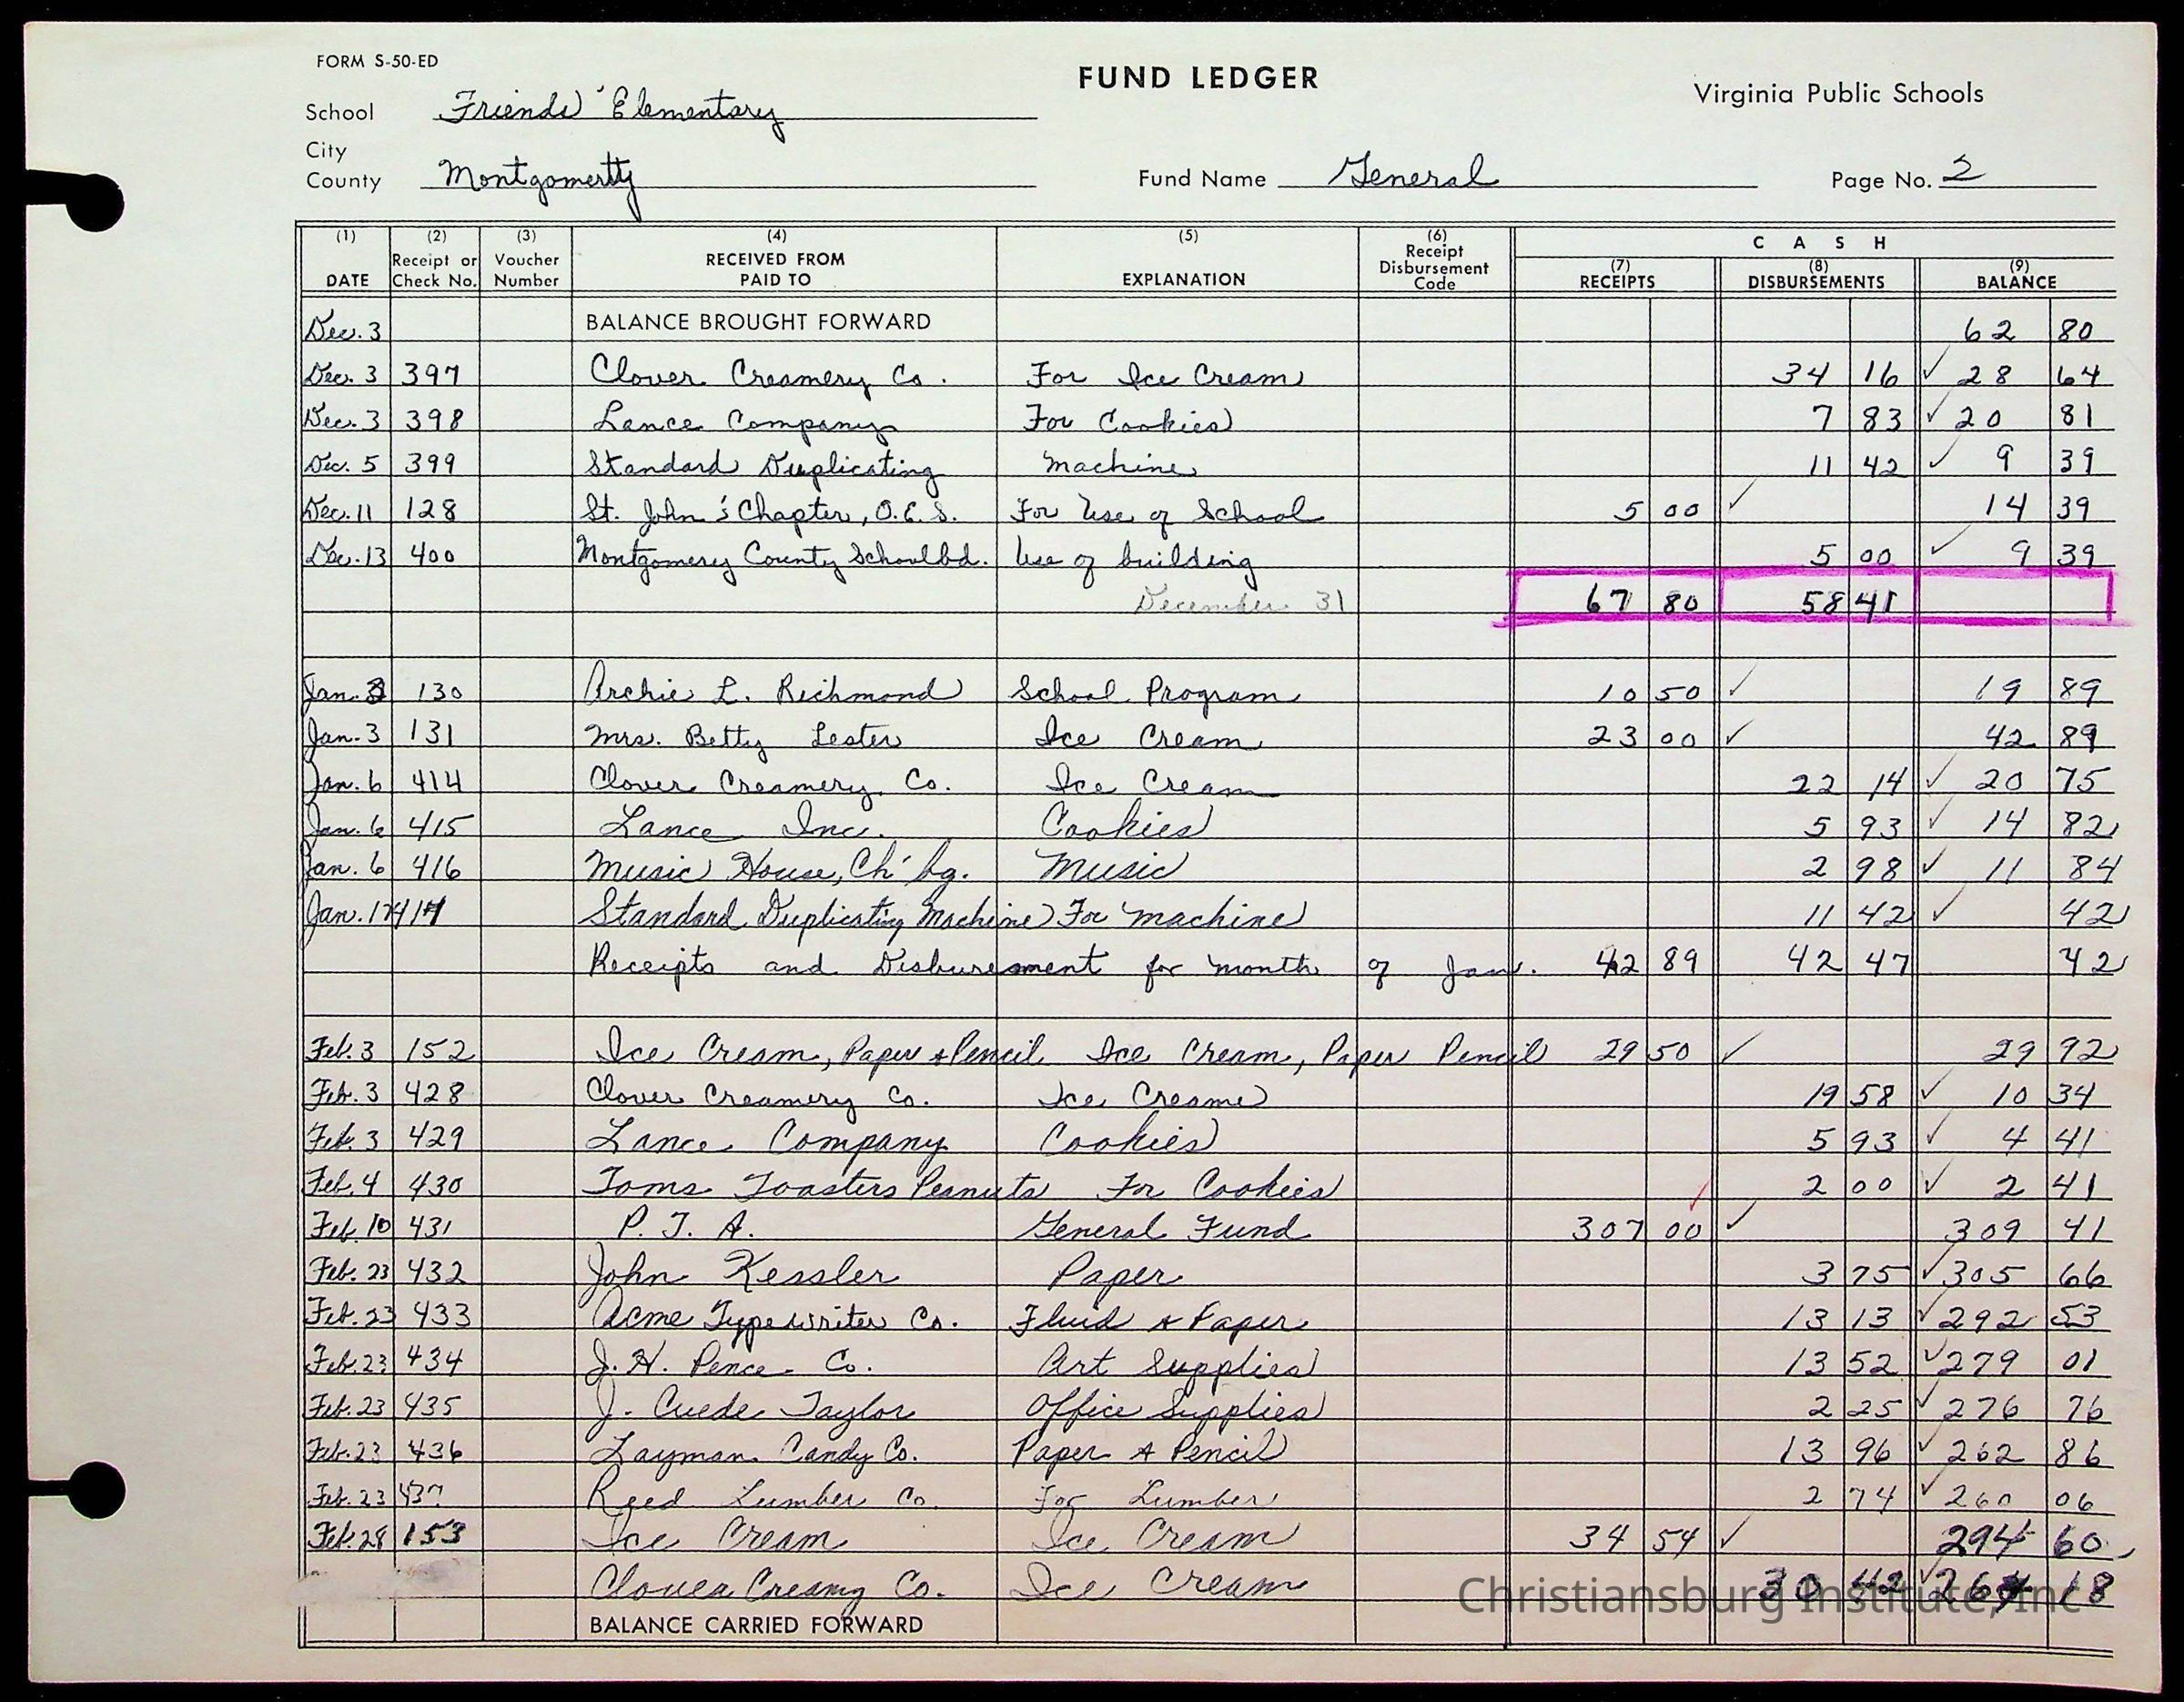 FORM S-50-ED
FUND LEDGER
Virginia Public Schools
School Friends' Elementary
City
County Montgomertty Fund Name General Page No. 2
(1) (2) (3) (4) (5) (6) C A S H
DATE Receipt or Check No. Voucher Number RECEIVED FROM PAID TO EXPLANATION Receipt Disbursement Code (7) RECEIPTS (8) DISBURSEMENTS (9) BALANCE
Dec. 3 BALANCE BROUGHT FORWARD 62 80
Dec. 3 397 Clover Creamery Co. For Ice Cream 34 16 ✓ 28 64
Dec. 3 398 Lance Company For Cookies 7 83 ✓ 20 81
Dec. 5 399 Standard Duplicating Machine 11 42 ✓ 9 39
Dec. 11 128 St. John's Chapter, O.E.S. For Use of School 5 00 ✓ 14 39
Dec. 13 400 Montgomery County School bd. Use of building 5 00 ✓ 9 39
December 31 67 80 58 41
Jan. 3 130 Archie L. Richmond School Program 10 50 ✓ 19 89
Jan. 3 131 Mrs. Betty Lester Ice Cream 23 00 ✓ 42 89
Jan. 6 414 Clover Creamery Co. Ice Cream 22 14 ✓ 20 75
Jan. 6 415 Lance Inc. Cookies 5 93 ✓ 14 82
Jan. 6 416 Music House, Ch'bg. Music 2 98 ✓ 11 84
Jan. 17 417 Standard Duplicating Machine For machine 11 42 ✓ 42
Receipts and Disbursement for month of Jan. 42 89 42 47 42
Feb. 3 152 Ice Cream, Paper & Pencil Ice Cream, Paper Pencil 29 50 ✓ 29 92
Feb. 3 428 Clover Creamery Co. Ice Creame 19 58 ✓ 10 34
Feb. 3 429 Lance Company Cookies 5 93 ✓ 4 41
Feb. 4 430 Toms Toasters Peanuts For Cookies 2 00 ✓ 2 41
Feb. 10 431 P. T. A. General Fund 307 00 ✓ 309 41
Feb. 23 432 John Kessler Paper 3 75 ✓ 305 66
Feb. 23 433 Acme Typewriter Co. Fluid & Paper 13 13 ✓ 292 53
Feb. 23 434 J. H. Pence Co. Art Supplies 13 52 ✓ 279 01
Feb. 23 435 J. Taylor Office Supplies 2 25 ✓ 276 76
Feb. 23 436 Layman Candy Co. Paper & Pencil 13 96 ✓ 262 86
Feb. 23 437 Reed Lumber Co. For Lumber 2 74 ✓ 260 06
Feb. 28 153 Ice Cream Ice Cream 34 54 ✓ 294 60
Clover Creamy Co. Ice Cream 30 42 ✓ 264 18
BALANCE CARRIED FORWARD
Christiansburg Institute, Inc